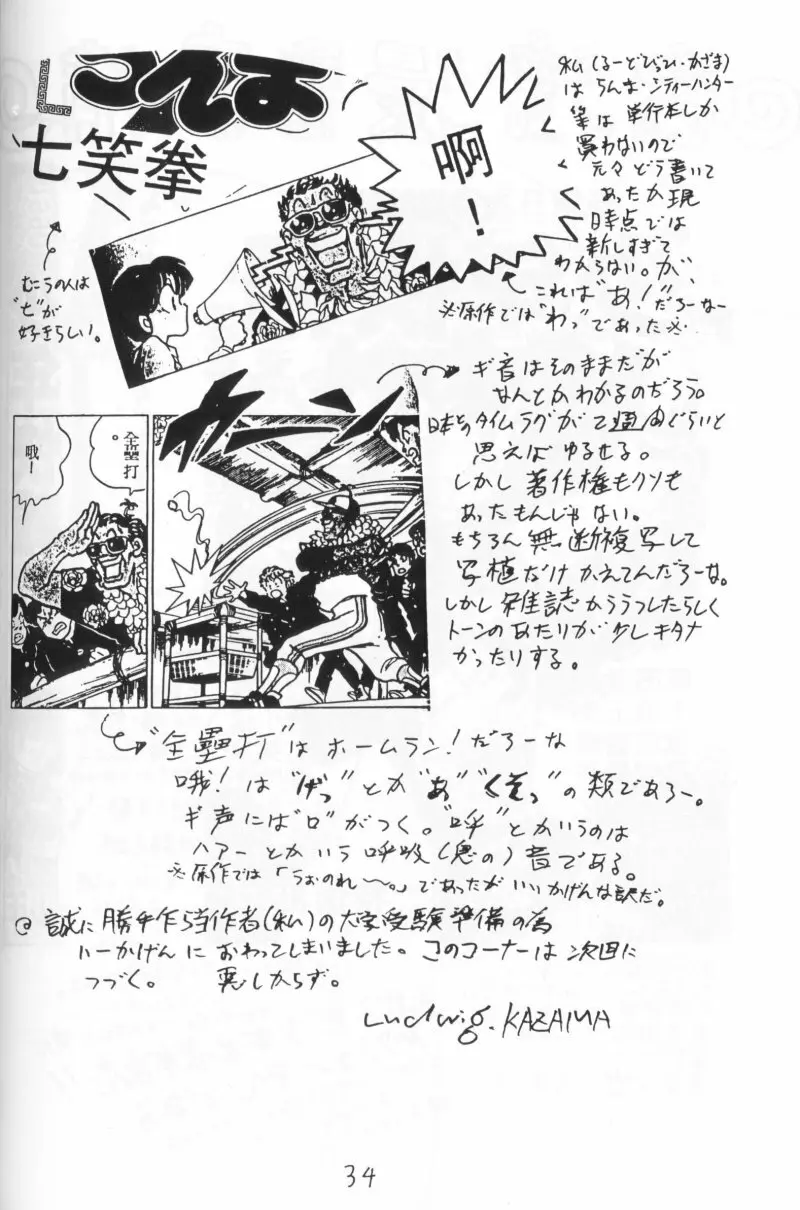 らんま
七笑拳
啊！
私(るーどびひ・かざま)
は らんま・シティーハンター
等は 単行本しか
買わないので
元々どう書いて
あったか現
時点では
新しすぎて
わからない。が、
これは"あ！"だろーなー
※原作では"わっ"であった※
むこうの人は
"七"が
好きらしい。
カーン
ギ音はそのままだが
なんとかわかるのだろう。
日本とのタイムラグが2週間ぐらいと
思えばゆるせる。
しかし著作権もクソも
あったもんじゃない。
もちろん無断複写して
写植だけかえてんだろーな。
しかし雑誌からうつしたらしく
トーンのあたりが少しキタナ
かったりする。
全壘打。
哦！
"全壘打"はホームラン！だろーな
哦！は"げっ"とか"あ""くそっ"の類であろー。
ギ声には"口"がつく。"呼"とかいうのは
ハアーとかいう呼吸(息の)音である。
※原作では「うおのれ〜。」であったがいいかげんな訳だ。
◎誠に勝手乍ら当作者(私)の大学受験準備の為
いーかげんにおわってしまいました。このコーナーは次回に
つづく。 悪しからず。
Ludwig. KAZAMA
34